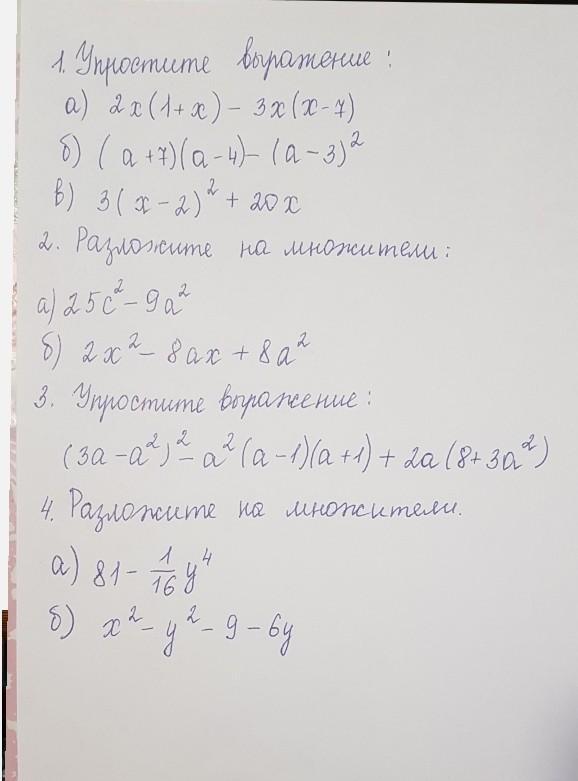 1. Упростите выражение:
а) 2x(1+x) - 3x(x-7)
б) (a+7)(a-4) - (a-3)²
в) 3(x-2)² + 20x
2. Разложите на множители:
а) 25c² - 9a²
б) 2x² - 8ax + 8a²
3. Упростите выражение:
(3a - a²)² - a²(a-1)(a+1) + 2a(8+3a²)
4. Разложите на множители.
а) 81 - 1/16 y⁴
б) x² - y² - 9 - 6y